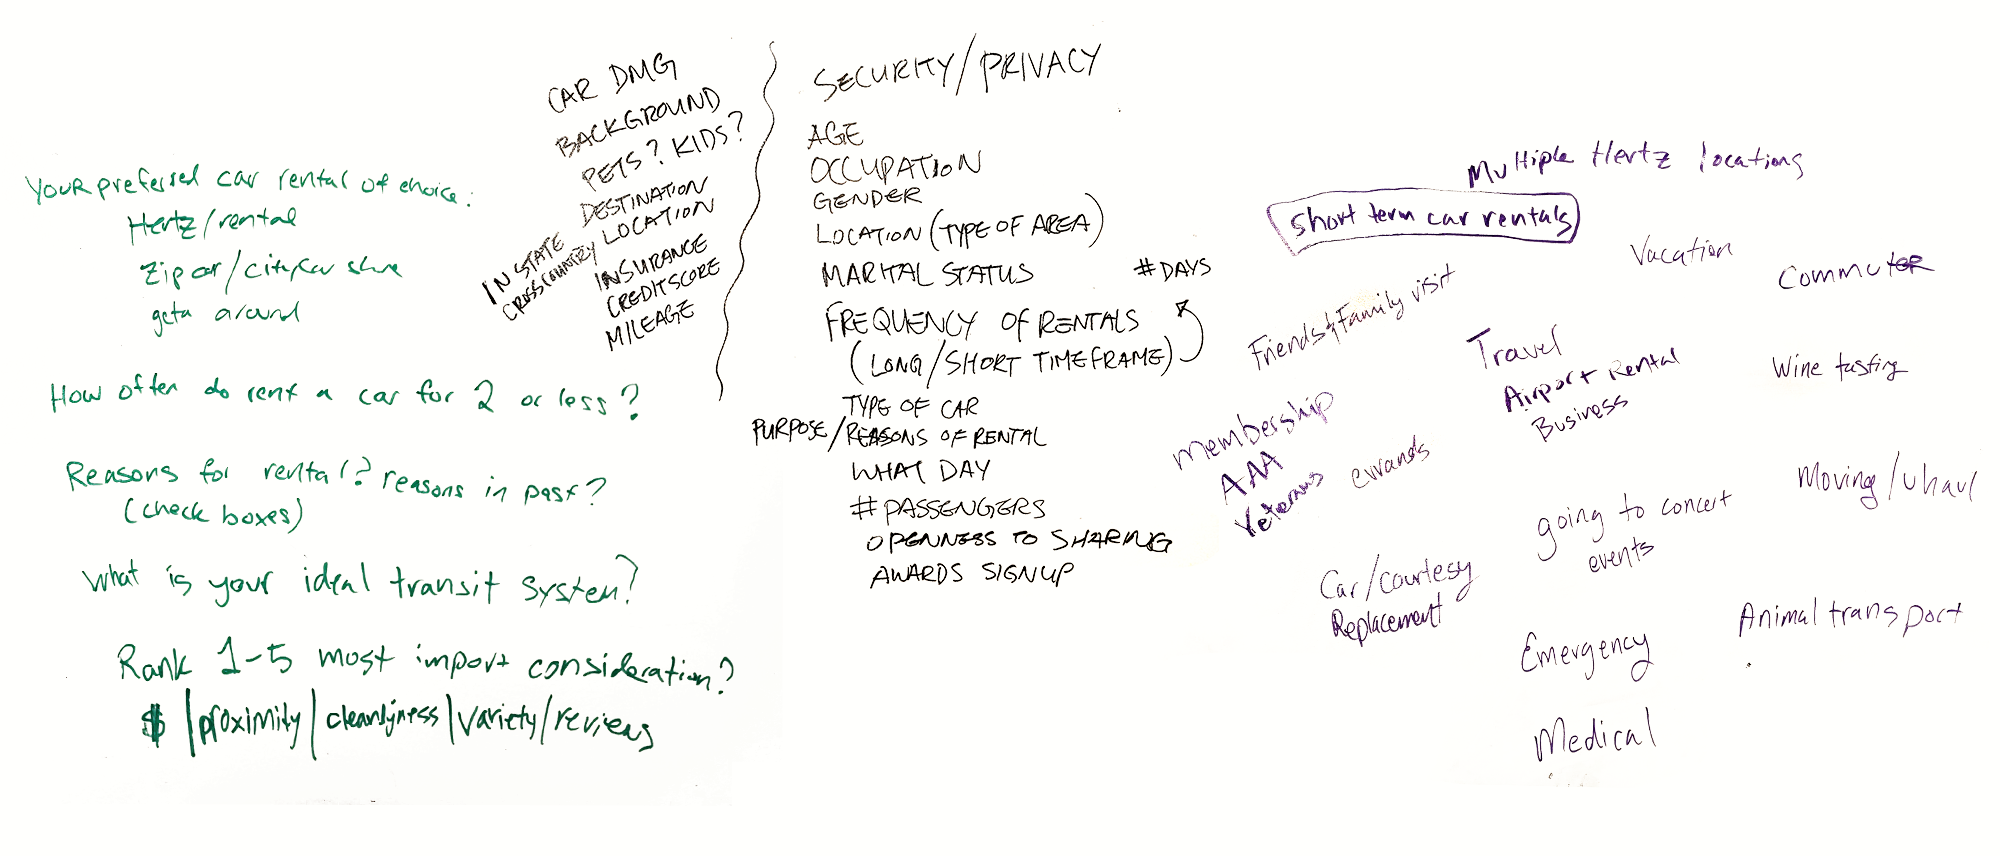 YOUR preferred car rental of choice:
Hertz/rental
Zipcar/citycar share
geta around
How often do rent a car for 2 or less?
Reasons for rental? reasons in past?
(check boxes)
What is your ideal transit system?
Rank 1-5 most import consideration?
$ | proximity | cleanlyness | variety / reviews
CAR DMG
BACKGROUND
PETS? KIDS?
DESTINATION
LOCATION
IN STATE
CROSS COUNTRY
INSURANCE
CREDIT SCORE
MILEAGE
SECURITY/PRIVACY
AGE
OCCUPATION
GENDER
LOCATION (TYPE OF AREA)
MARITAL STATUS
# DAYS
FREQUENCY OF RENTALS
(LONG/SHORT TIMEFRAME)
TYPE OF CAR
PURPOSE/REASONS OF RENTAL
WHAT DAY
# PASSENGERS
OPENNESS TO SHARING
AWARDS SIGNUP
Multiple Hertz locations
short term car rentals
Vacation
Commuter
Friends & Family visit
Travel
Airport Rental
Business
Wine tasting
membership
AAA
Veterans
errands
going to concert
events
Moving/uhaul
Car/courtesy
Replacement
Emergency
Animal transport
Medical